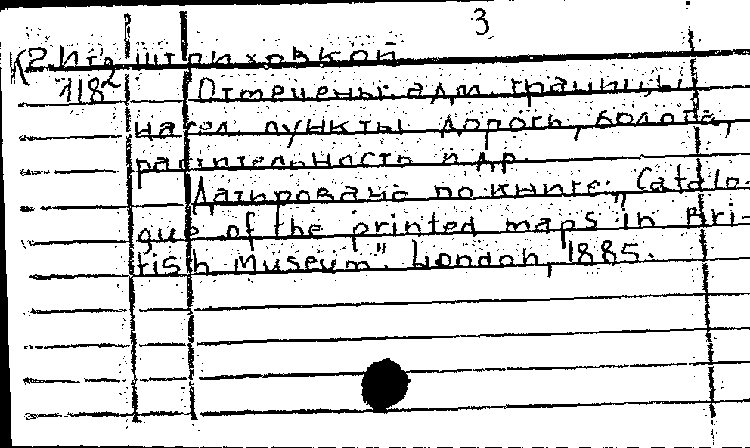 3
штриховкой
1182 Отмечены: адм. границы,
насел. пункты, дороги, болота,
растительность и др.
Датировано по книге: „Catalo-
gue of the printed maps in Bri-
tish Museum". London, 1885.